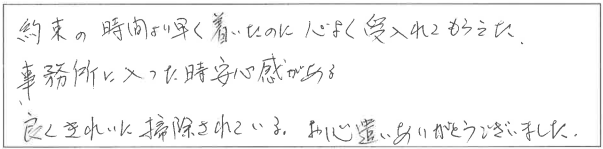 約束の時間より早く着いたのに心よく受入れてもらえた。
事務所に入った時安心感がある
良くきれいに掃除されている。お心遣いありがとうございました。